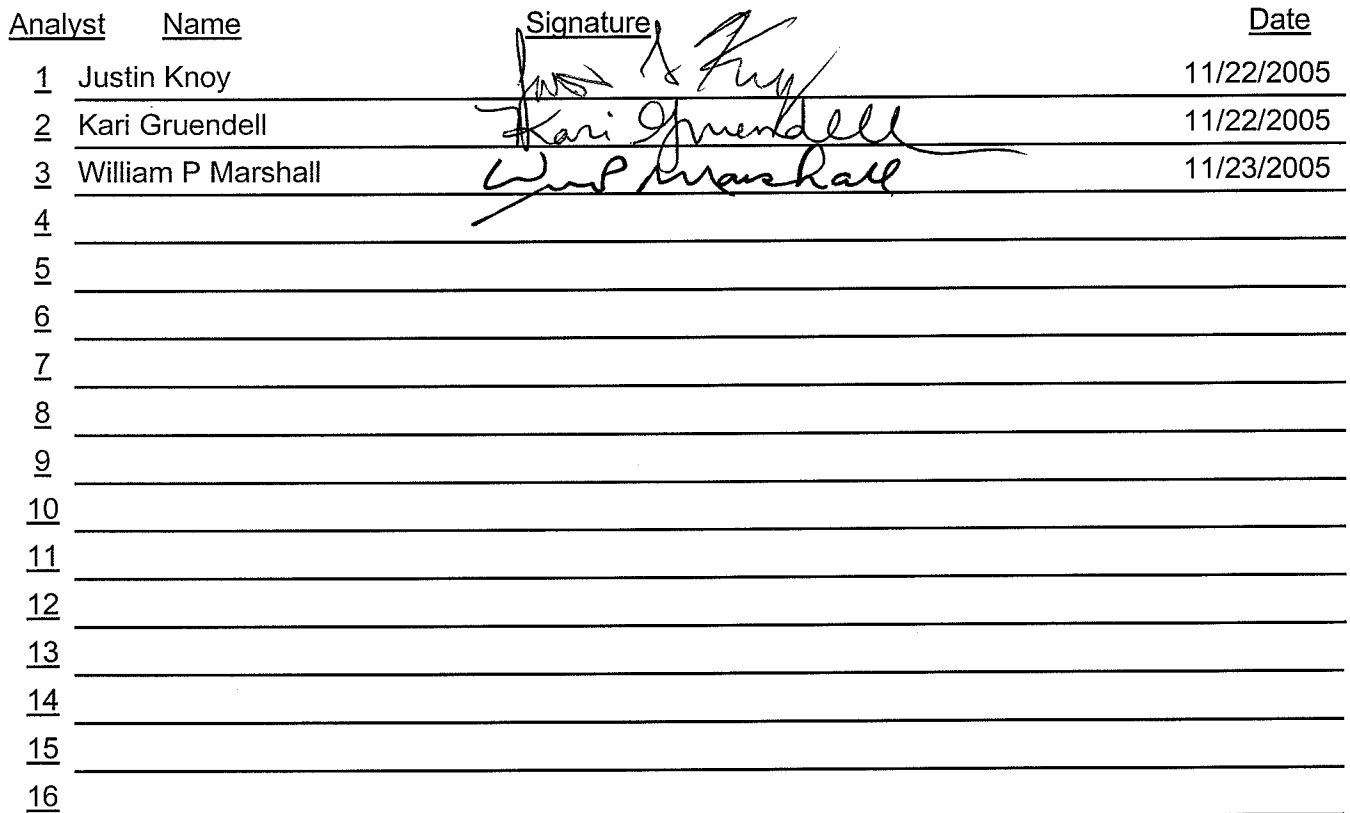 Analyst Name Signature Date
1 Justin Knoy 11/22/2005
2 Kari Gruendell Kari Gruendell 11/22/2005
3 William P Marshall Wm P Marshall 11/23/2005
4
5
6
7
8
9
10
11
12
13
14
15
16